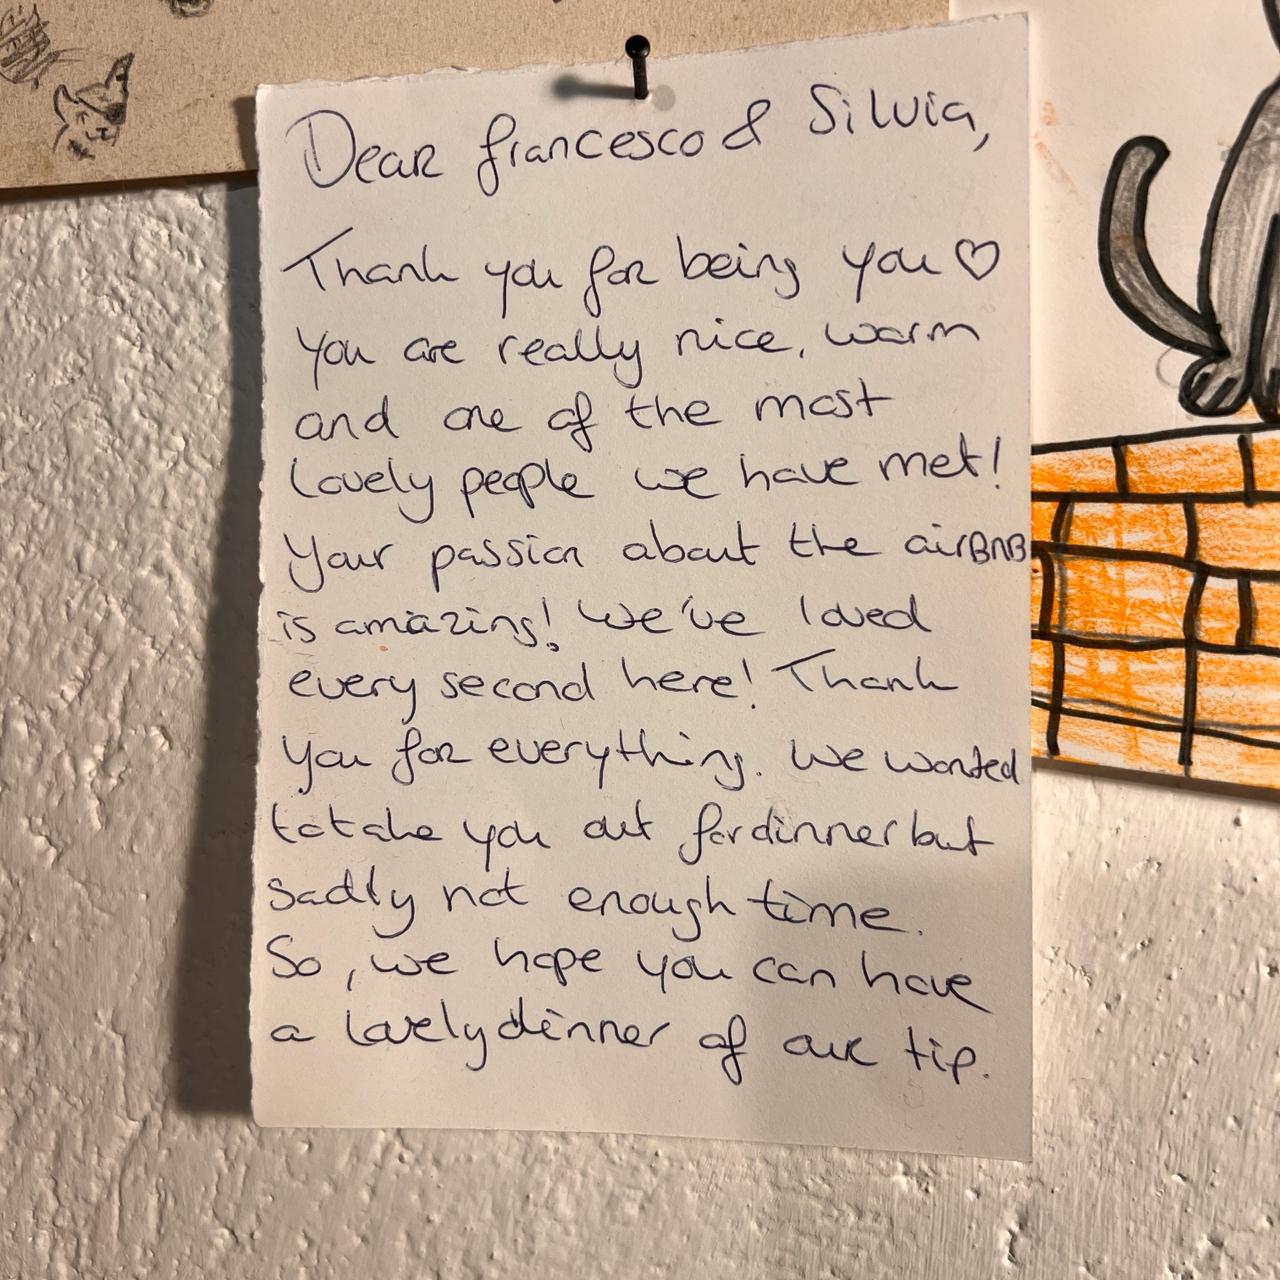 Dear francesco & Silvia,
Thank you for being you ♡
You are really nice, warm
and one of the most
lovely people we have met!
Your passion about the airBNB
is amazing! We've loved
every second here! Thank
you for everything. We wanted
to take you out for dinner but
sadly not enough time.
So, we hope you can have
a lovely dinner of our tip.